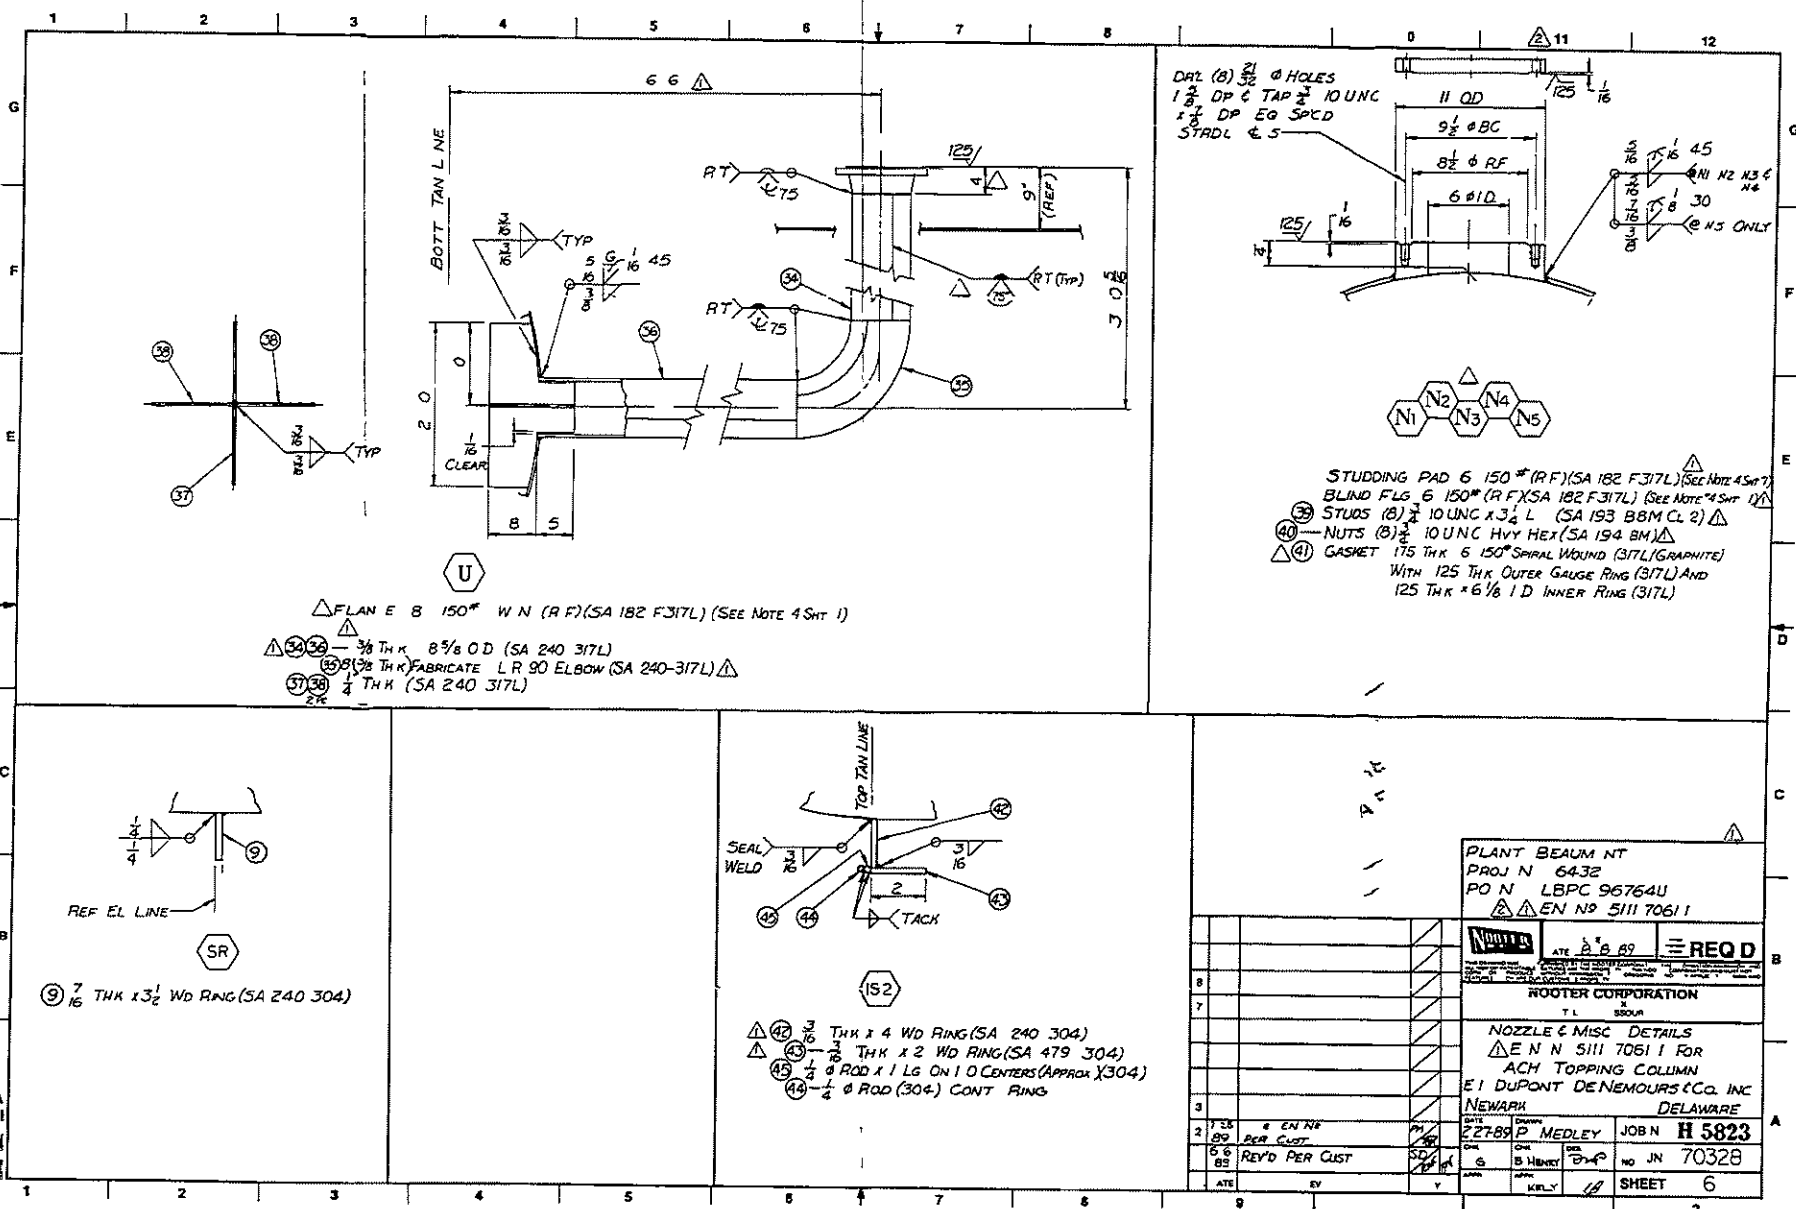 1 2 3 4 5 6 7 8 11 12
G
F
E
D
C
B
A
6 6
BOTT TAN L NE
RT
75
125
4
9"
(REF)
TYP
5 G 1/16 45
RT
75
RT (TYP)
75
34
36
35
3 0 5/16
38
38
37
3/16
3/16
TYP
0
2 0
1/16
CLEAR
8 5
U
FLAN E 8 150# W N (R F)(SA 182 F317L) (SEE NOTE 4 SHT 1)
34 36 — 3/8 THK 8 5/8 O D (SA 240 317L)
35 8 (3/8 THK) FABRICATE L R 90 ELBOW (SA 240-317L)
37 38 1/4 THK (SA 240 317L)
DRL (8) 21/32 Φ HOLES
1 5/8 DP & TAP 3/4 10 UNC
x 7/8 DP EQ SPCD
STRDL ℄ S
125
1/16
11 OD
9 1/2 Φ BC
8 1/2 Φ RF
6 Φ I.D.
125
1/16
5/16 1/16 45
@ N1 N2 N3 & N4
7/16 1/8 30
@ N5 ONLY
N1 N2 N3 N4 N5
STUDDING PAD 6 150# (R F)(SA 182 F317L) (SEE NOTE 4 SHT 1)
BLIND FLG 6 150# (R F)(SA 182 F317L) (SEE NOTE 4 SHT 1)
39 STUDS (8) 3/4 10 UNC x 3 1/4 L (SA 193 B8M CL 2)
40 — NUTS (8) 3/4 10 UNC HVY HEX (SA 194 8M)
41 GASKET 175 THK 6 150# SPIRAL WOUND (317L/GRAPHITE)
WITH 125 THK OUTER GAUGE RING (317L) AND
125 THK x 6 1/8 I D INNER RING (317L)
1/4
1/4
9
REF EL LINE
SR
9 7/16 THK x 3 1/2 WD RING (SA 240 304)
TOP TAN LINE
42
SEAL
WELD
3/16
3
16
2
43
45 44
TACK
IS2
42 3/16 THK x 4 WD RING (SA 240 304)
43 — 3/16 THK x 2 WD RING (SA 479 304)
45 1/4 Φ ROD x 1 LG ON 1 0 CENTERS (APPROX)(304)
44 — 1/4 Φ ROD (304) CONT RING
PLANT BEAUM NT
PROJ N 6432
PO N LBPC 96764U
EN Nº 5111 7061 1
NOOTER
ATE 8 8 89
REQ D
NOOTER CORPORATION
T L SSOUR
NOZZLE & MISC DETAILS
E N N 5111 7061 1 FOR
ACH TOPPING COLUMN
E I DUPONT DE NEMOURS & CO. INC
NEWARK DELAWARE
DATE 2 27 89 DRAWN P MEDLEY JOB N H 5823
B HENRY NO JN 70328
KELLY SHEET 6
8
7
3
2 7 25 89 EN Nº PER CUST
6 6 89 REV'D PER CUST
ATE